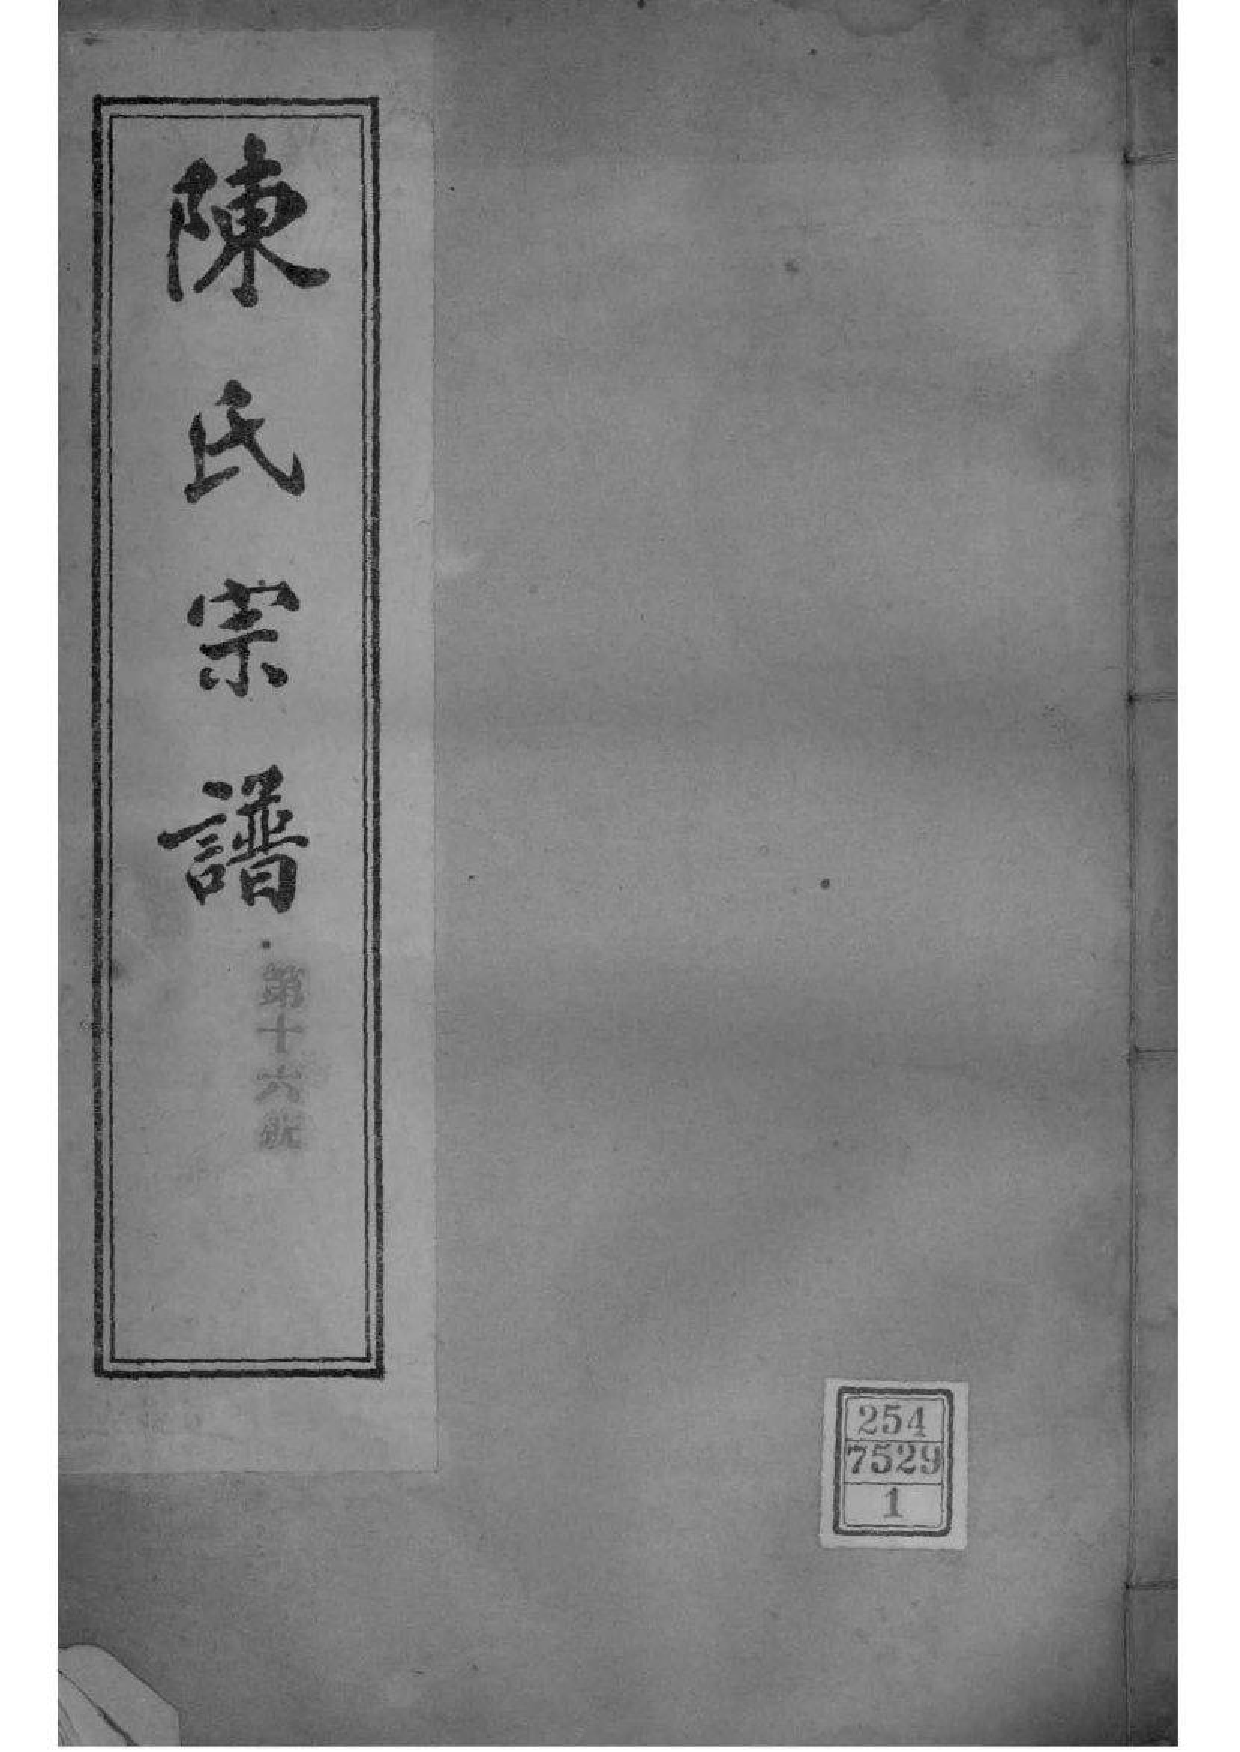 陳氏宗譜
第十六號
254
7529
1